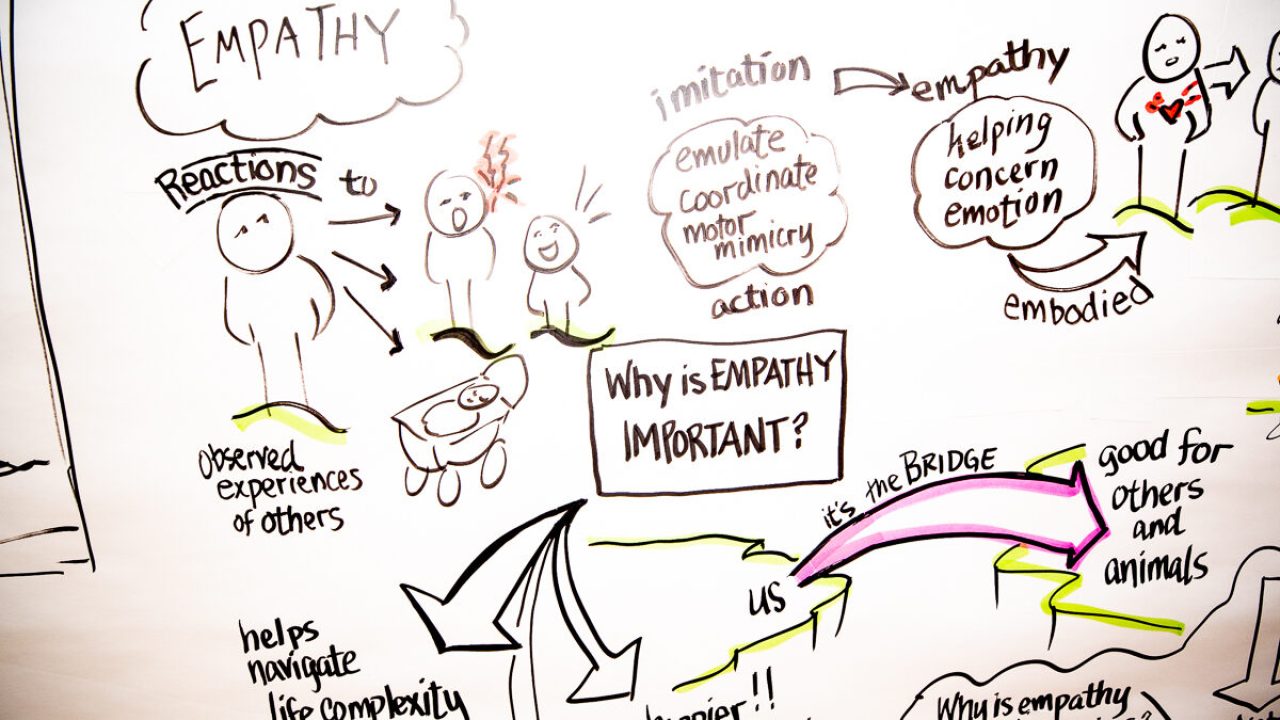 EMPATHY
Reactions to
observed
experiences
of others
imitation
emulate
coordinate
motor
mimicry
action
empathy
helping
concern
emotion
embodied
Why is EMPATHY
IMPORTANT?
it's the BRIDGE
us
good for
others
and
animals
helps
navigate
life complexity
Why is empathy